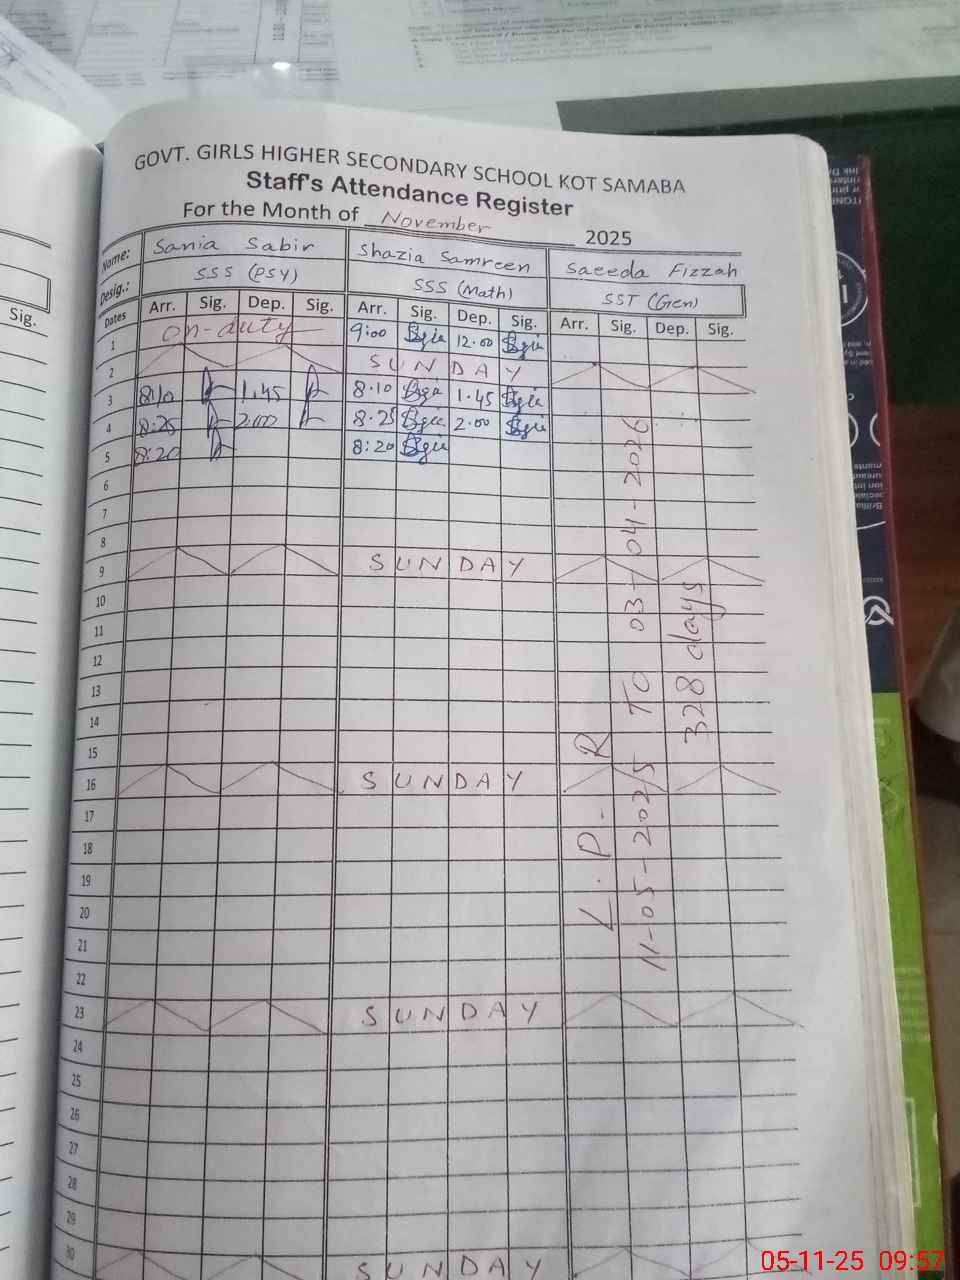 GOVT. GIRLS HIGHER SECONDARY SCHOOL KOT SAMABA
Staff's Attendance Register
For the Month of November 2025
Name: Sania Sabir Shazia Samreen Saeeda Fizzah
Desig.: SSS (PSY) SSS (Math) SST (Gen)
Dates Arr. Sig. Dep. Sig. Arr. Sig. Dep. Sig. Arr. Sig. Dep. Sig.
1 on-duty 9:00 12.00
2 SUNDAY
3 8:10 1.45 8.10 1.45
4 8:25 2.00 8.25 2.00
5 8:20 8:20
6
7
8
9 SUNDAY
10
11
12
13
14
15
16 SUNDAY
17
18
19
20
21
22
23 SUNDAY
24
25
26
27
28
29
30 SUNDAY
L.P.R
11-05-2025 TO 03-04-2026
328 days
Sig.
05-11-25 09:57